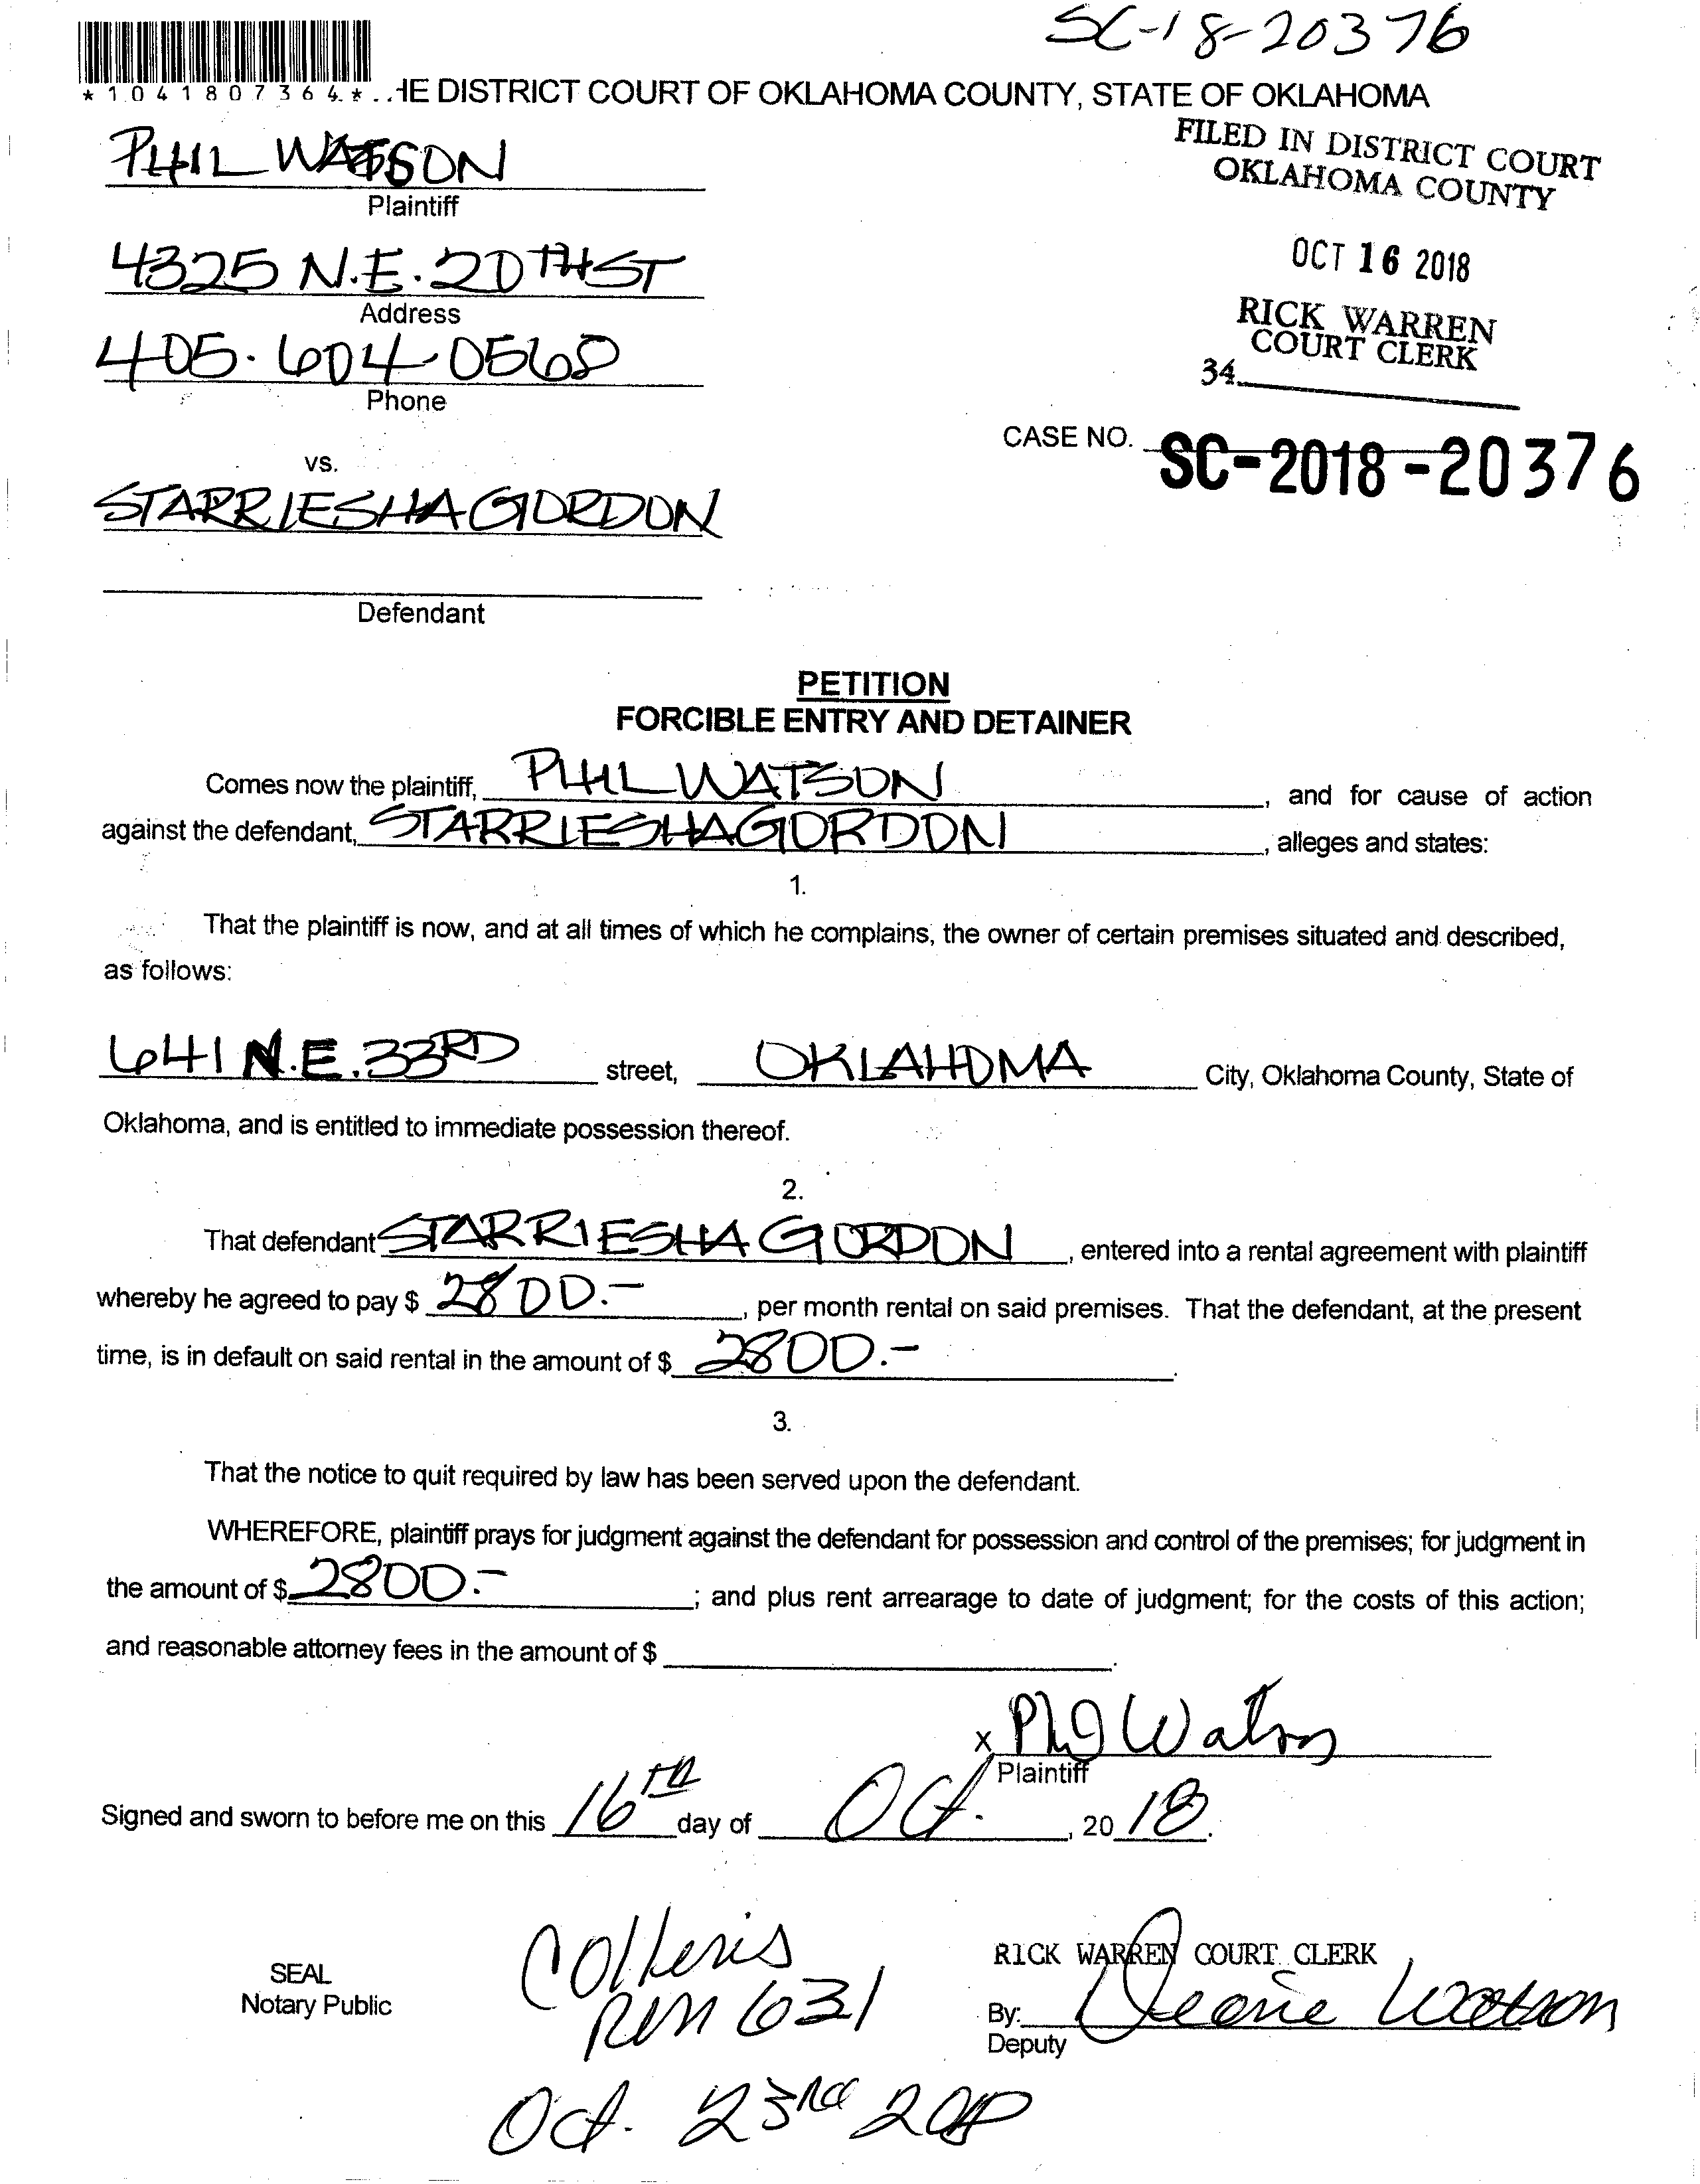 SC-18-20376
* 1 0 4 1 8 0 7 3 6 4 *
HE DISTRICT COURT OF OKLAHOMA COUNTY, STATE OF OKLAHOMA
PHIL WATSON
Plaintiff
FILED IN DISTRICT COURT
OKLAHOMA COUNTY
4325 N.E. 20TH ST
Address
OCT 16 2018
405.604-0568
Phone
RICK WARREN
COURT CLERK
34
CASE NO. SC-2018-20376
vs.
STARRIESHA GORDON
Defendant
PETITION
FORCIBLE ENTRY AND DETAINER
Comes now the plaintiff, PHIL WATSON, and for cause of action
against the defendant, STARRIESHA GORDON, alleges and states:
1.
That the plaintiff is now, and at all times of which he complains, the owner of certain premises situated and described,
as follows:
641 N.E. 33RD street, OKLAHOMA City, Oklahoma County, State of
Oklahoma, and is entitled to immediate possession thereof.
2.
That defendant STARRIESHA GORDON, entered into a rental agreement with plaintiff
whereby he agreed to pay $ 2800.-, per month rental on said premises. That the defendant, at the present
time, is in default on said rental in the amount of $ 2800.-.
3.
That the notice to quit required by law has been served upon the defendant.
WHEREFORE, plaintiff prays for judgment against the defendant for possession and control of the premises; for judgment in
the amount of $ 2800.-; and plus rent arrearage to date of judgment; for the costs of this action;
and reasonable attorney fees in the amount of $ .
x Phil Watson
Plaintiff
Signed and sworn to before me on this 16th day of Oct., 2018.
SEAL
Notary Public
RM 631
Oct. 23rd
RICK WARREN COURT CLERK
By: Watson
Deputy